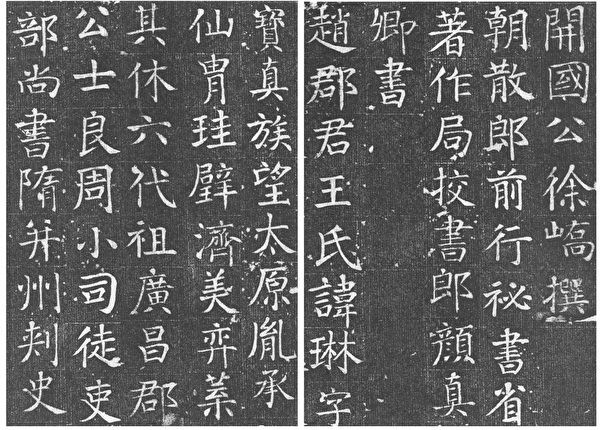 開國公徐嶠撰
朝散郎前行祕書省
著作局校書郎顏真
卿書
趙郡君王氏諱琳字
寶真族望太原胤承
仙胄珪璧濟美弈葉
其休六代祖廣昌郡
公士良周小司徒吏
部尚書隋并州刾史